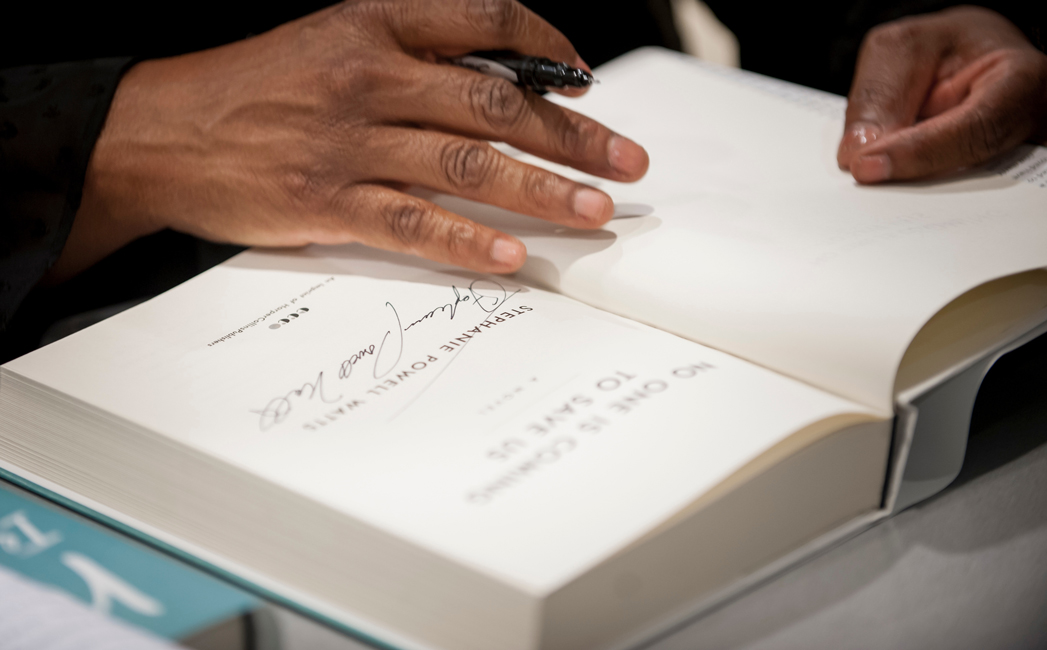 NO ONE IS COMING
TO SAVE US
A NOVEL
STEPHANIE POWELL WATTS
Stephanie Powell Watts
An Imprint of HarperCollinsPublishers